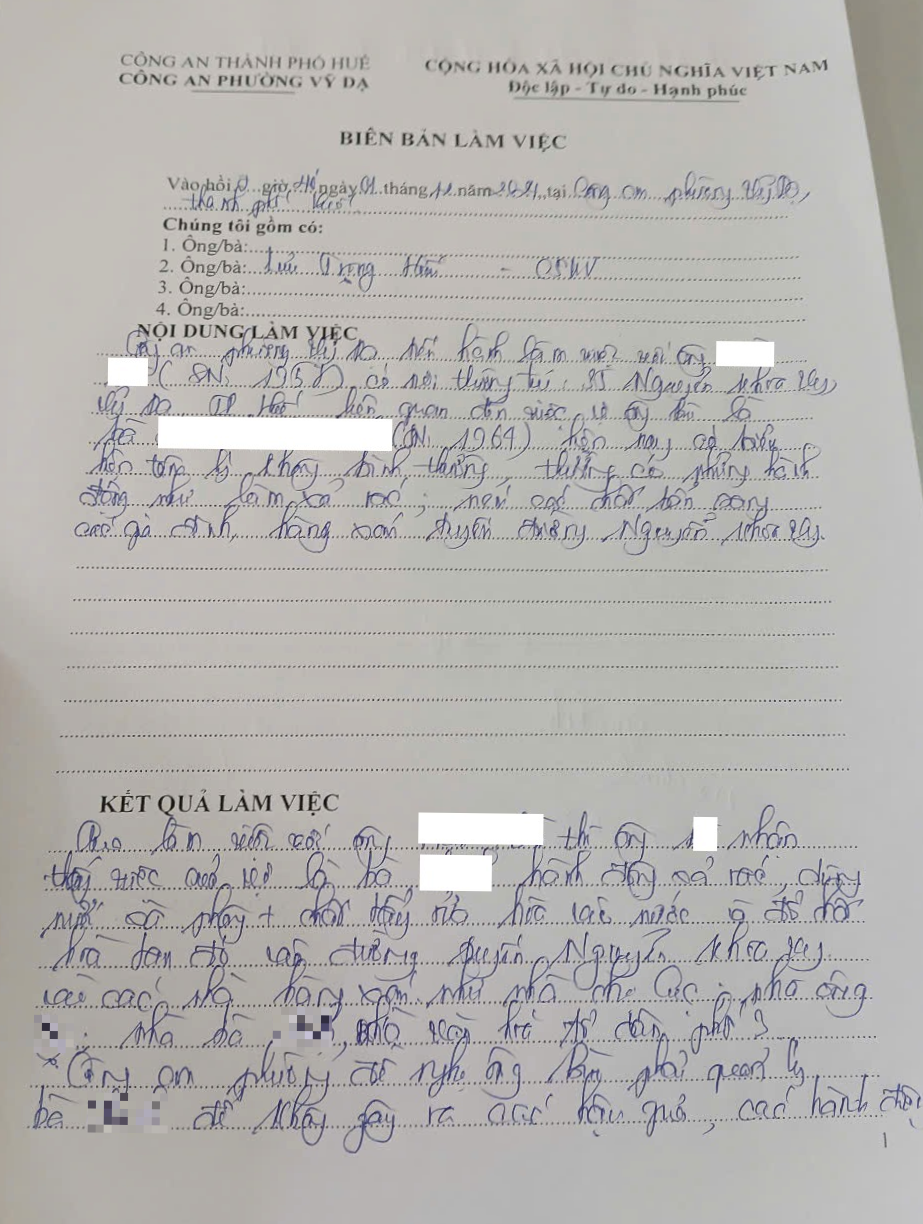 CÔNG AN THÀNH PHỐ HUẾ
CÔNG AN PHƯỜNG VỸ DẠ
CỘNG HÒA XÃ HỘI CHỦ NGHĨA VIỆT NAM
Độc lập - Tự do - Hạnh phúc
BIÊN BẢN LÀM VIỆC
Vào hồi giờ ngày 01 tháng 11 năm tại Công an phường Vỹ Dạ,
thành phố Huế
Chúng tôi gồm có:
1. Ông/bà:
2. Ông/bà: Trọng - CSKV
3. Ông/bà:
4. Ông/bà:
NỘI DUNG LÀM VIỆC
Công an phường Vỹ Dạ tiến hành làm việc với ông
(SN: ), có nơi thường trú: Nguyễn Khoa Vy,
Vỹ Dạ, TP Huế liên quan đến việc vợ ông là
bà (SN: 1964) hiện nay có biểu
hiện tâm lý không bình thường, thường có những hành
động như làm xả rác, ném các chất bẩn sang
các gia đình, hàng xóm tuyến đường Nguyễn Khoa Vy.
KẾT QUẢ LÀM VIỆC
Qua làm việc với ông thì ông nhận
thấy việc của vợ là bà hành động xả rác, dùng
nước xà phòng + chất tẩy rửa
hòa tan đổ vào đường tuyến Nguyễn Khoa Vy
các nhà hàng xóm như nhà nhà ông
nhà bà nhà văn hoá tổ dân phố 3
* Công an phường đề nghị ông phải quản lý
bà để không gây ra các hậu quả, các hành động
1